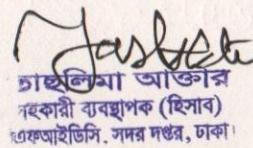 তাছলিমা আক্তার
সহকারী ব্যবস্থাপক (হিসাব)
এফআইডিসি, সদর দপ্তর, ঢাকা।